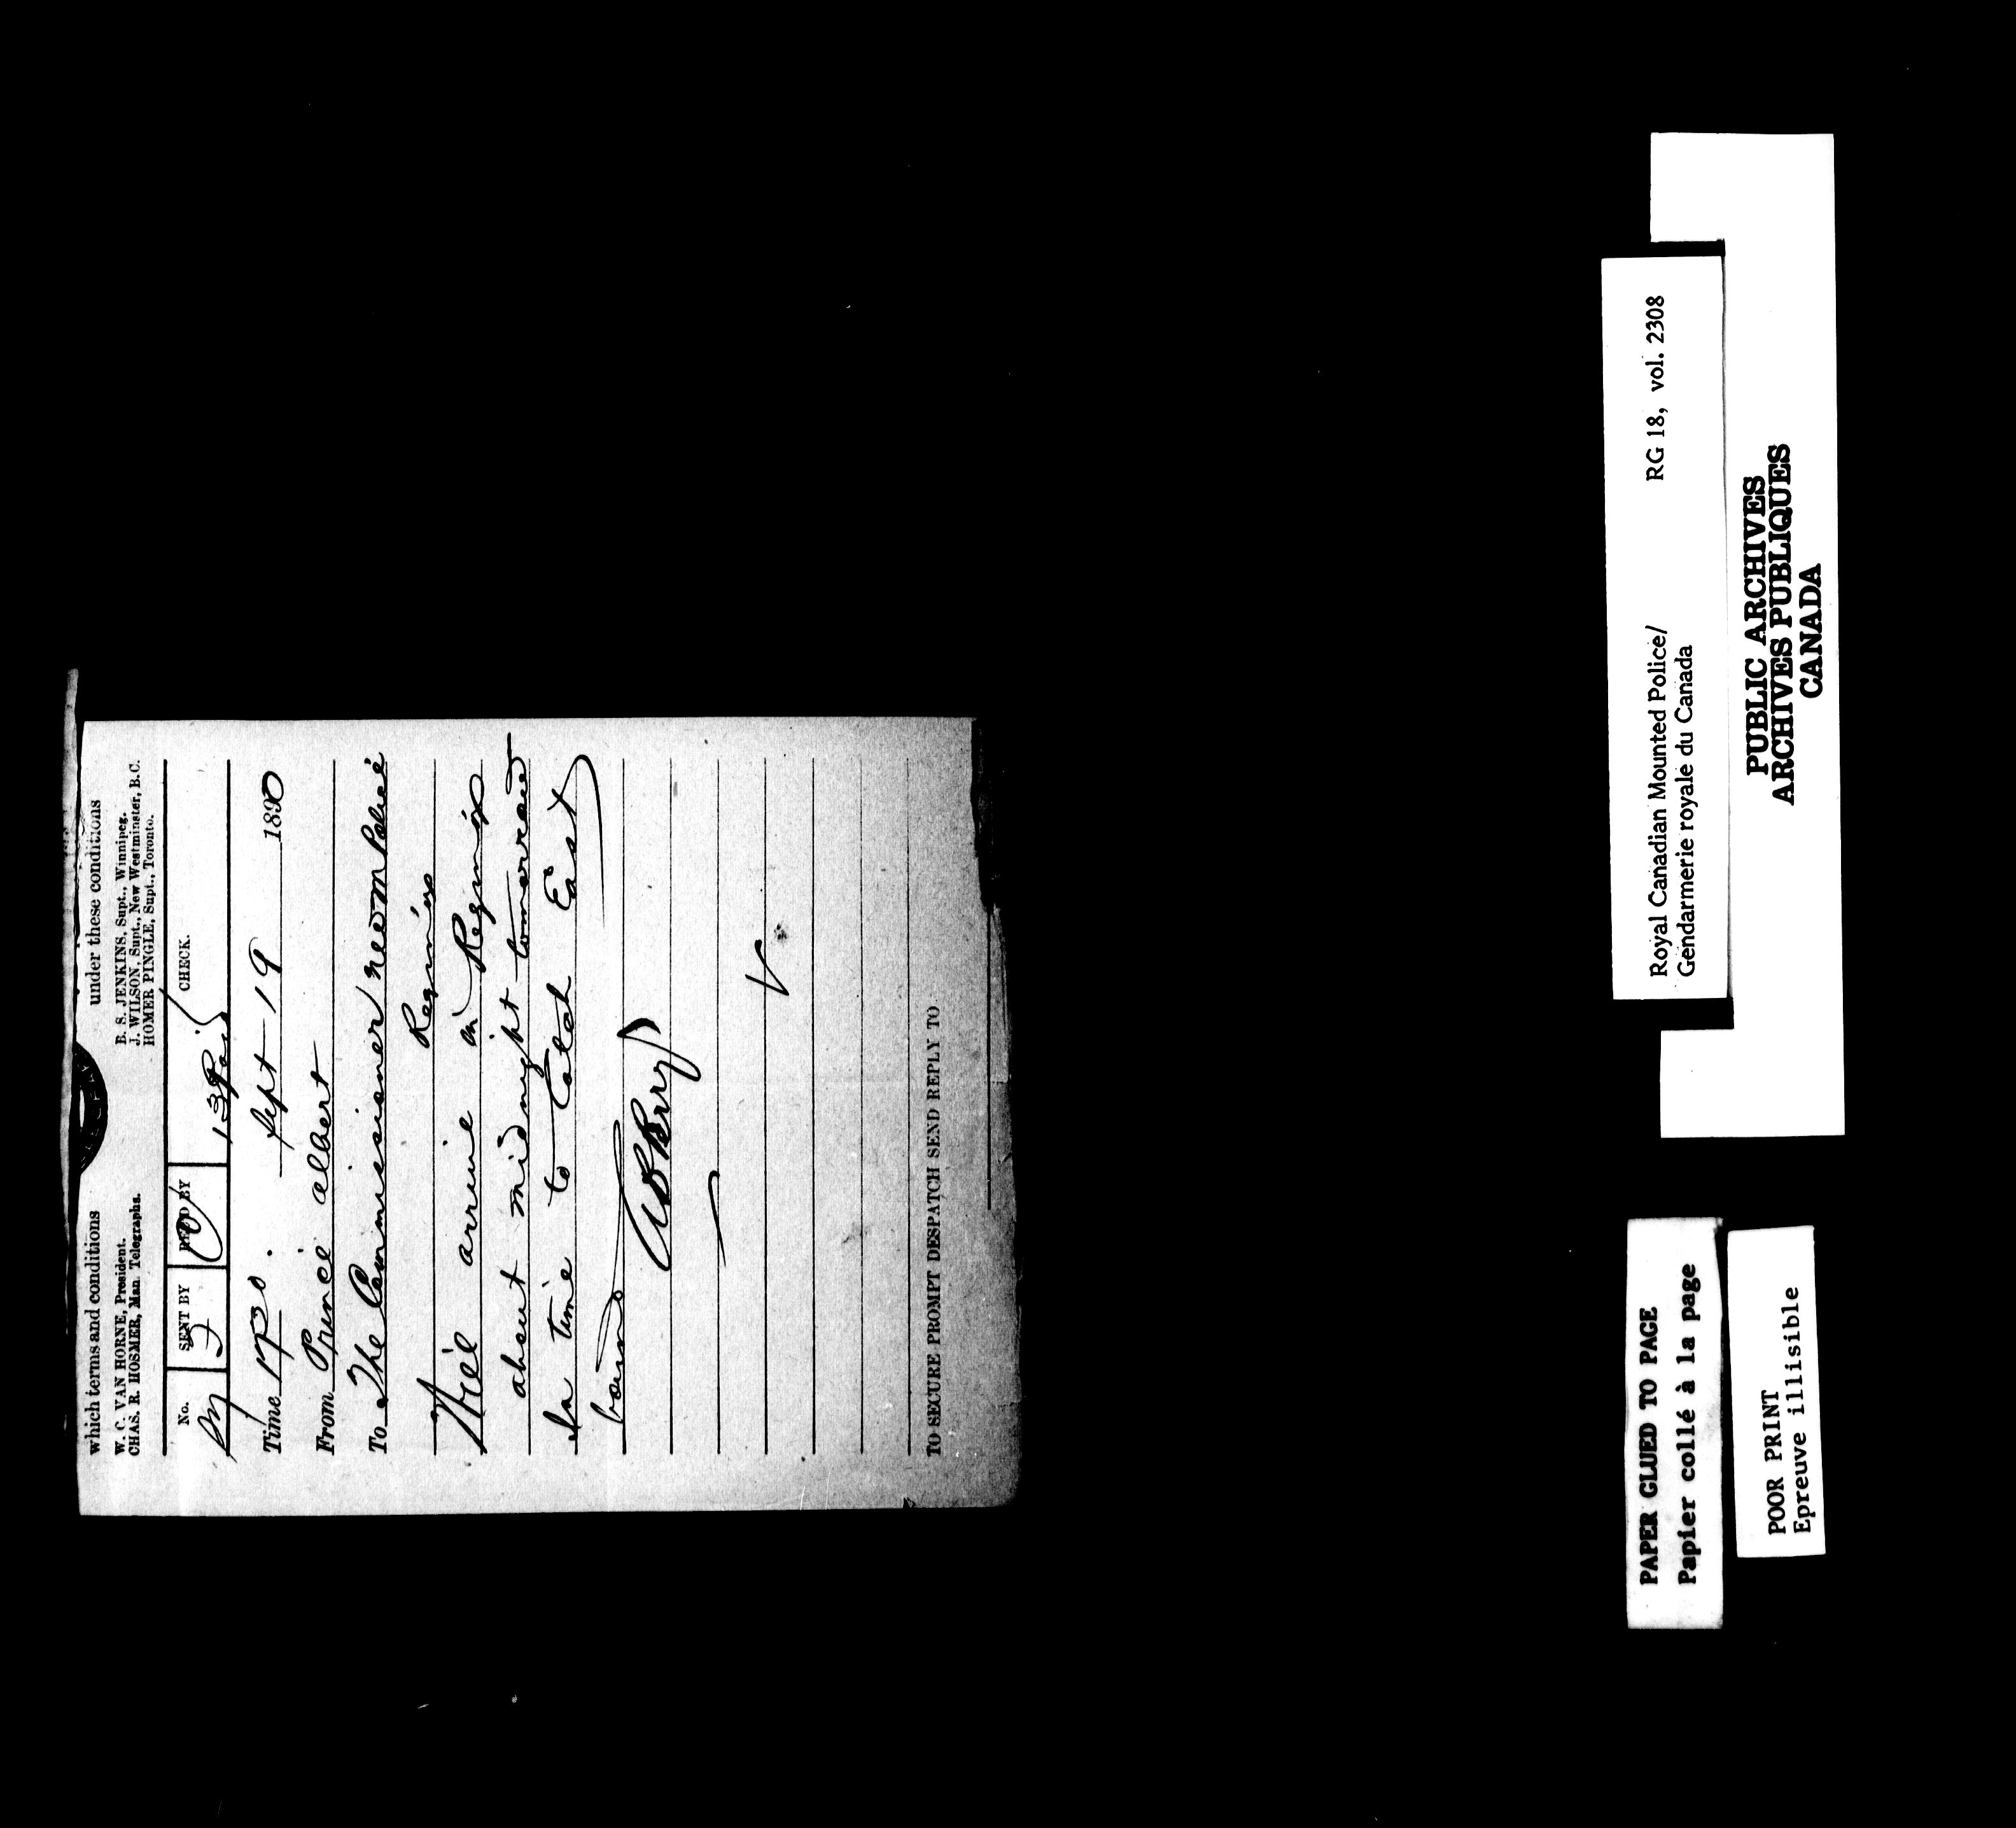 which terms and conditions under these conditions
W. C. VAN HORNE, President.
CHAS. R. HOSMER, Man. Telegraphs.
B. S. JENKINS, Supt., Winnipeg.
J. WILSON, Supt., New Westminster, B.C.
HOMER PINGLE, Supt., Toronto.
No. SENT BY REC'D BY CHECK.
13 Paid
Time Sept 19 1890
From Prince albert
To The Commissioner nwm Police
Regina
Will arrive in Regina
about midnight tomorrow
In time to Catch East
bound
A B Perry
TO SECURE PROMPT DESPATCH SEND REPLY TO
Royal Canadian Mounted Police/ RG 18, vol. 2308
Gendarmerie royale du Canada
PUBLIC ARCHIVES
ARCHIVES PUBLIQUES
CANADA
PAPER GLUED TO PAGE
Papier collé à la page
POOR PRINT
Epreuve illisible